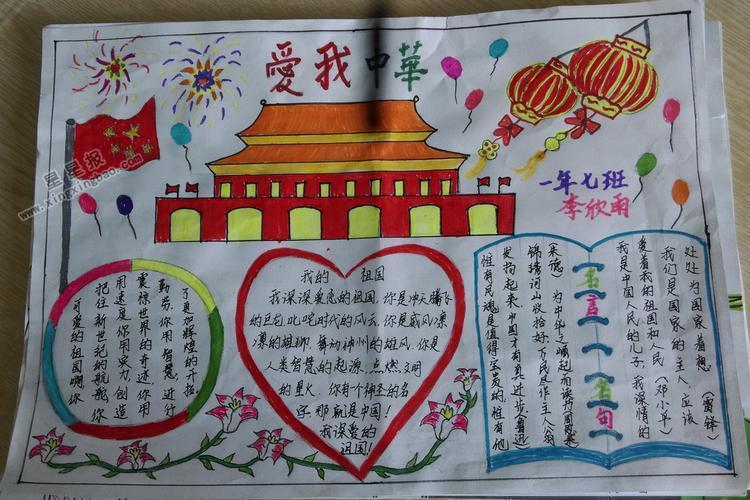 愛我中華
星星报
www.xingxingbao.com
一年七班
李欣雨
可爱的祖国啊、你
把住新世纪的航舵、你
用速度、你用实力、创造
震惊世界的奇迹、你用
勤劳、你用智慧、进行
了更加辉煌的开拓
我的 祖国
我深深爱恋的祖国、你是冲天腾飞
的巨龙、叱咤时代的风云、你是威风凛
凛的雄狮、舞动神州的雄风、你是
人类智慧的起源、点燃文明
的星火、你有一个神圣的名
字、那就是中国!
我深爱的
祖国!
惟有民魂是值得宝贵的、惟有他
发扬起来、中国才有真进步(鲁迅)
锦绣河山收拾好、万民尽作主人翁
(朱德) 为中华之崛起而读书(周恩来)
名言名句
我是中国人民的儿子、我深情的
爱着我的祖国和人民(邓小平)
我们是国家的主人、应该
处处为国家着想(雷锋)